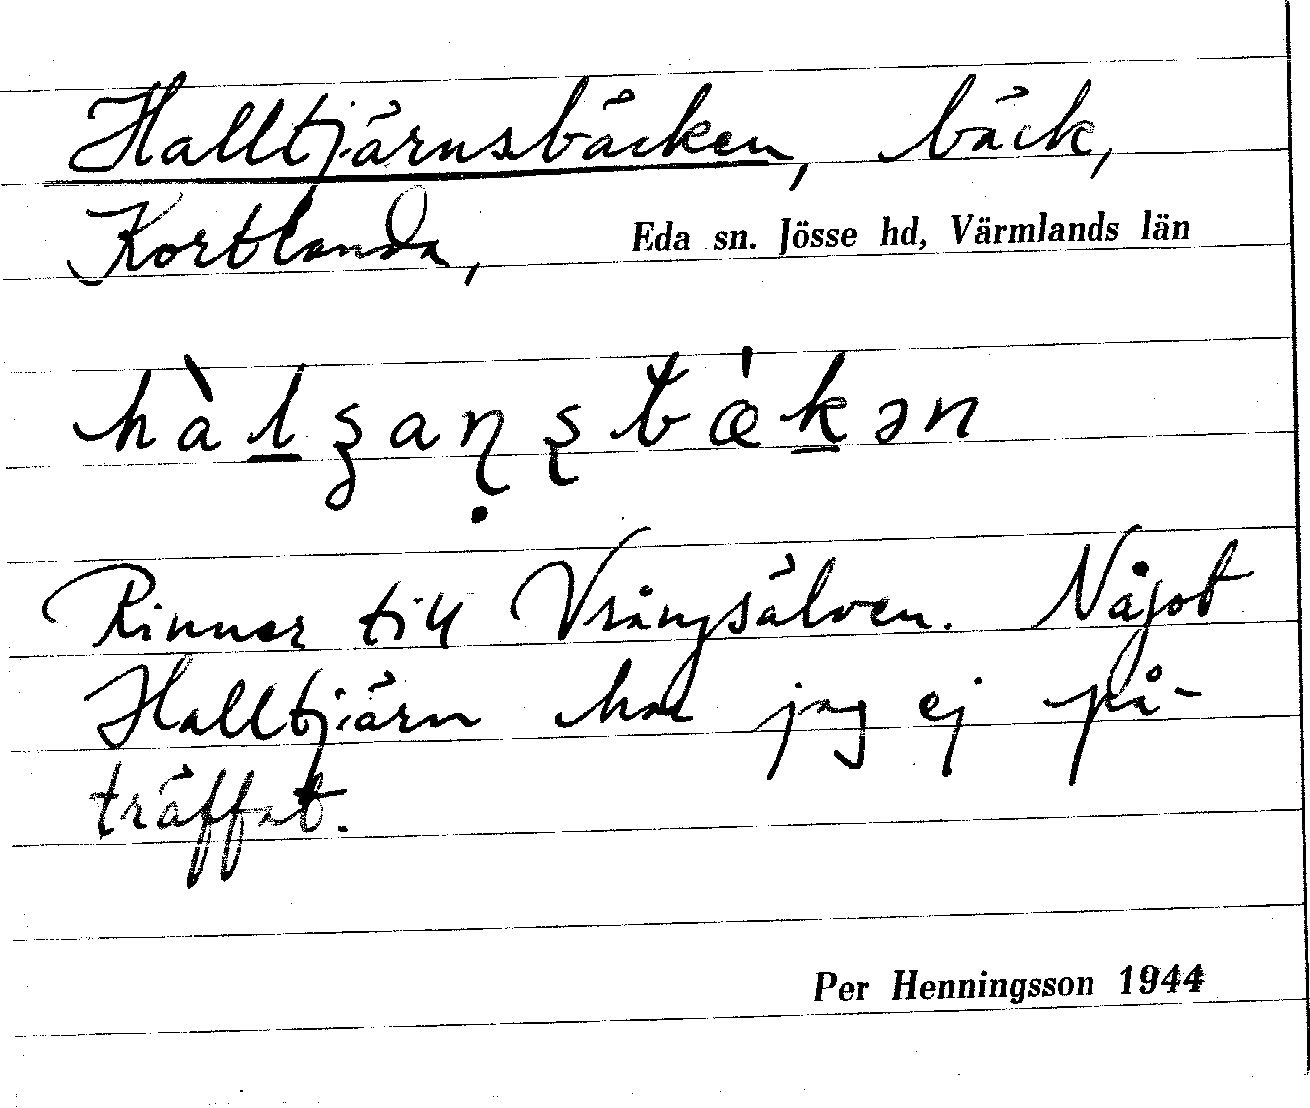 Halltjärnsbäcken, bäck,
Kortlanda, Eda sn. Jösse hd, Värmlands län
Rinner till Vrångsälven. Något
Halltjärn har jag ej på-
träffat.
Per Henningsson 1944